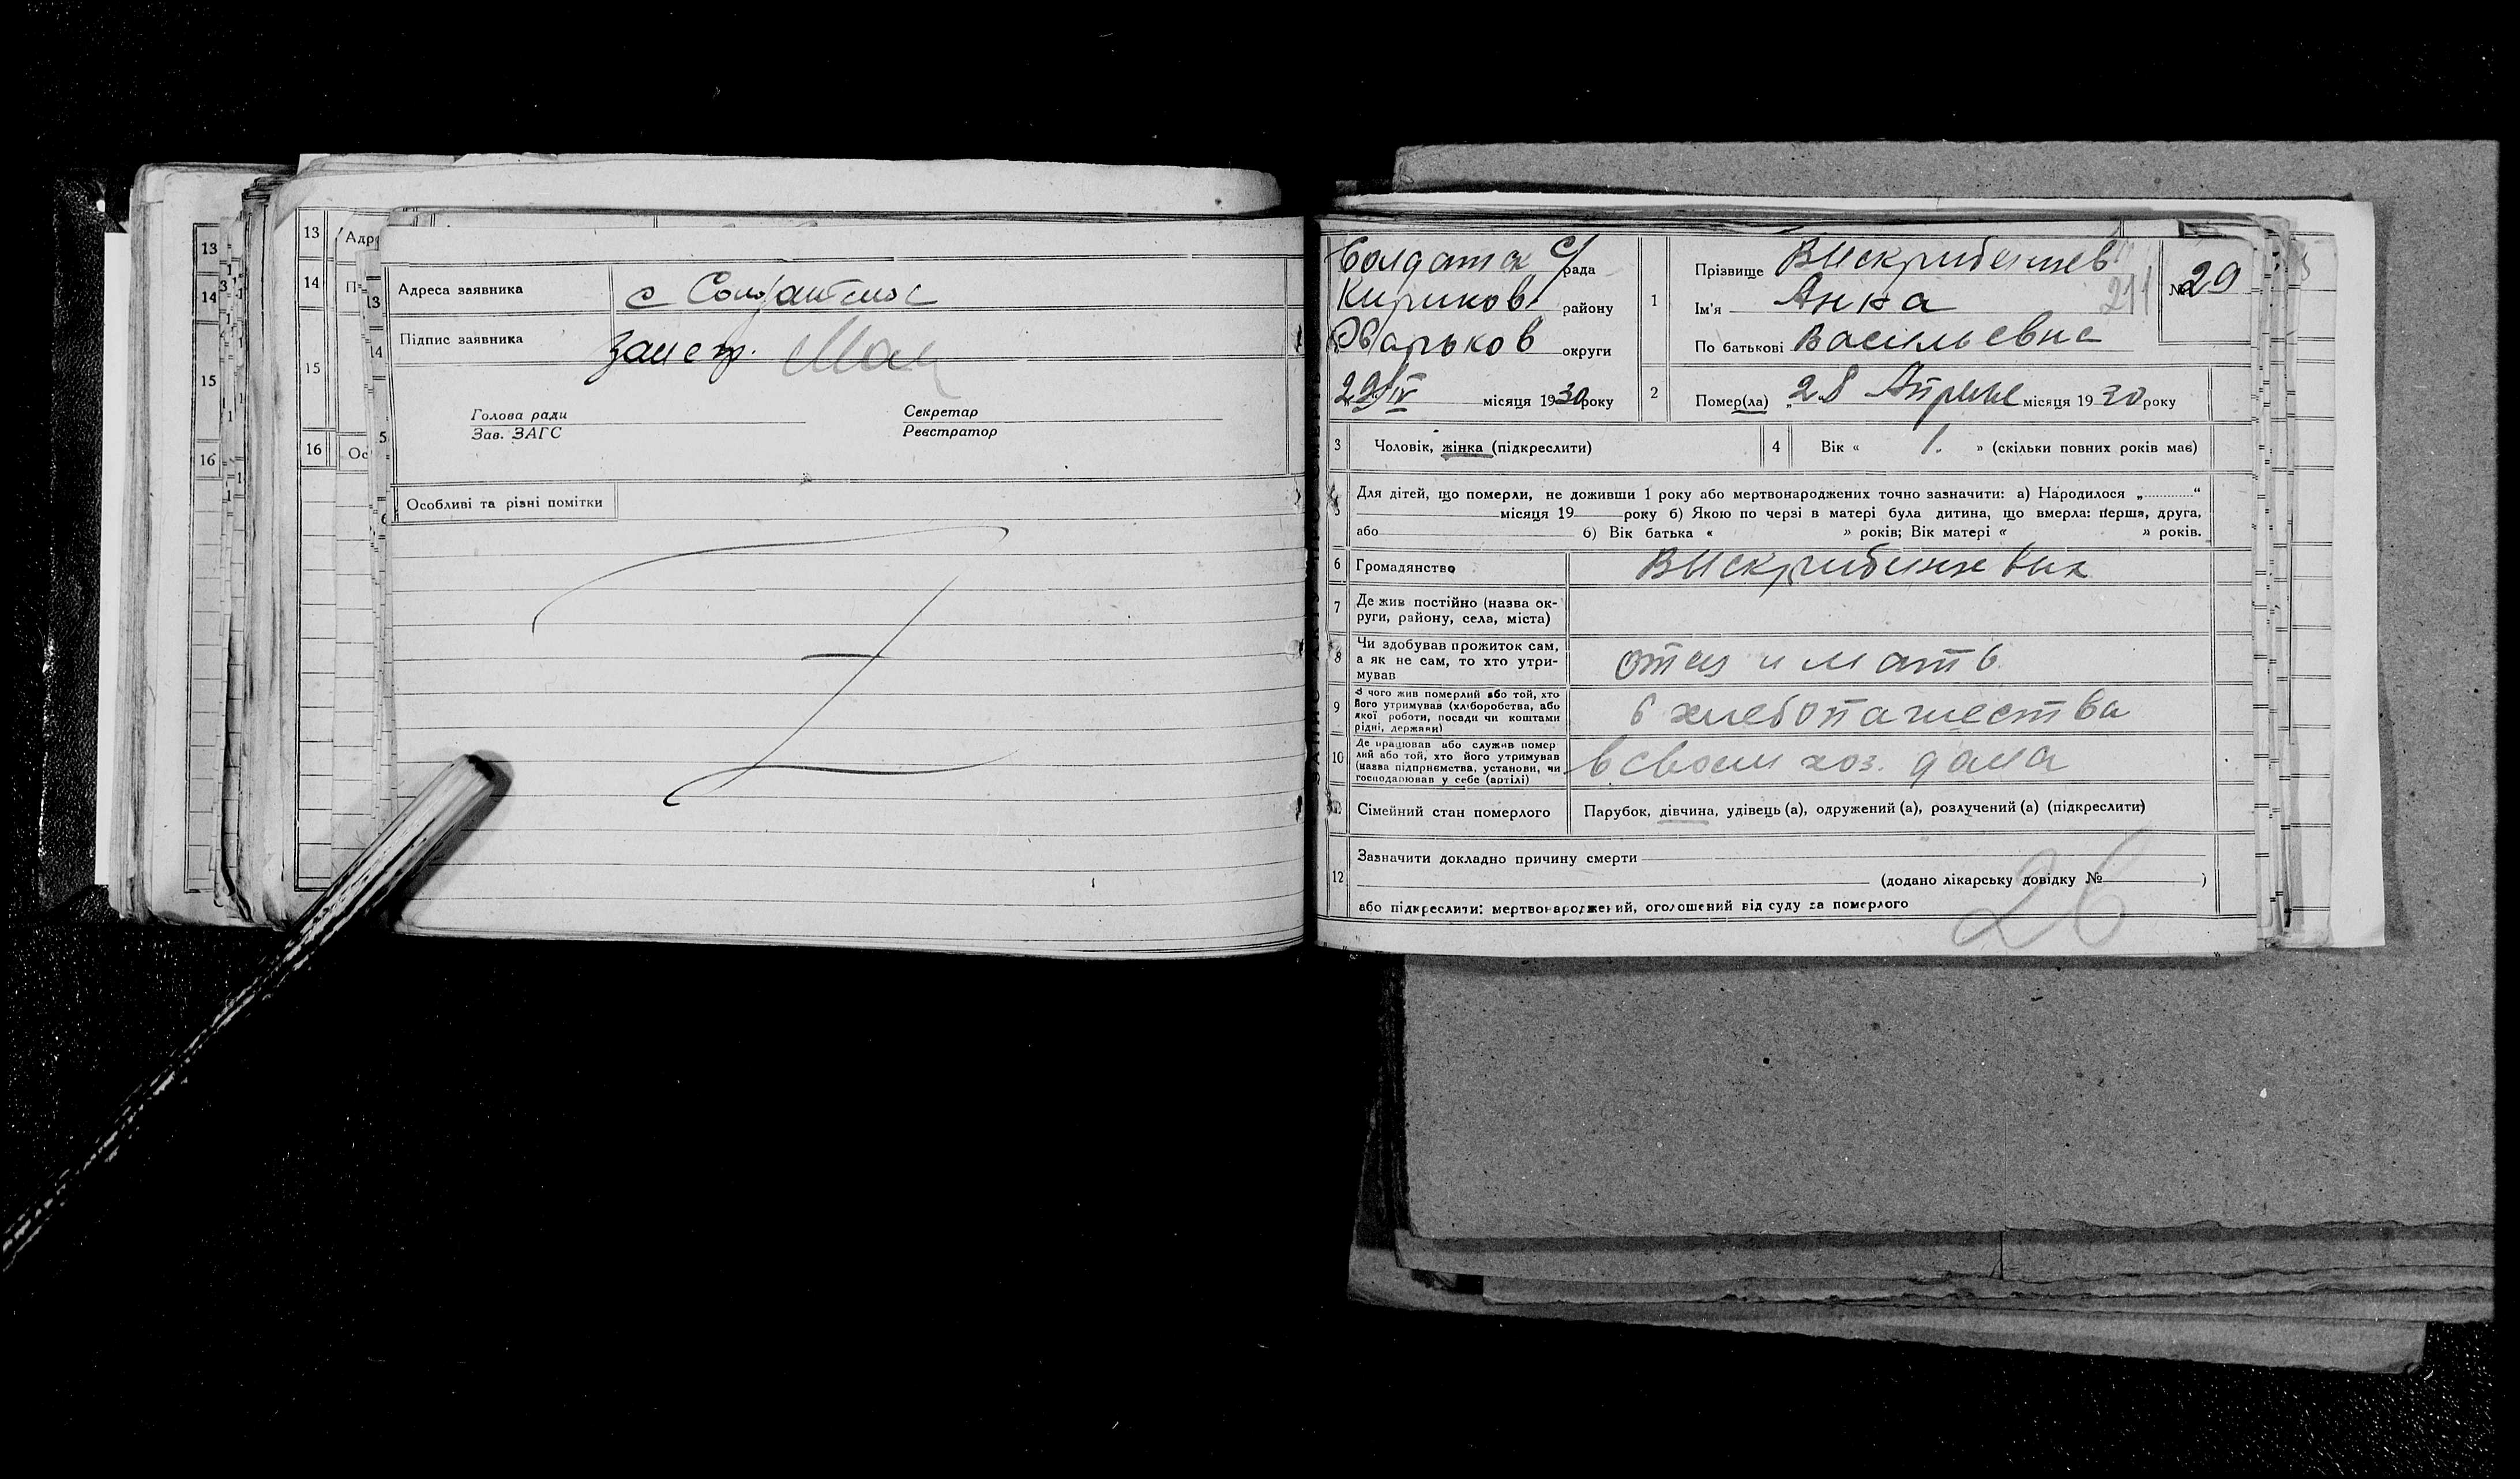 13
14
15
16
13
14
15
16
Адр
П
Ос
13
14
Адреса заявника
с
Підпис заявника
Голова ради
Зав. ЗАГС
Секретар
Реєстратор
Особливі та різні помітки
Солдатск с/рада
Кириков району
Харьков округи
29/IV місяця 1930 року
1
Прізвище
Ім'я Анна
211
По батькові Васильевна
№ 29
2
Помер(ла) „28 Апреля місяця 1930 року
3
Чоловік, жінка (підкреслити)
4
Вік « 1. » (скільки повних років має)
5
Для дітей, що померли, не доживши 1 року або мертвонароджених точно зазначити: а) Народилося „ “
місяця 19 року б) Якою по черзі в матері була дитина, що вмерла: перша, друга,
або б) Вік батька « » років; Вік матері « » років.
6
Громадянство
7
Де жив постійно (назва ок-
руги, району, села, міста)
8
Чи здобував прожиток сам,
а як не сам, то хто утри-
мував
отец и мать
9
З чого жив померлий або той, хто
його утримував (хліборобства, або
якої роботи, посади чи коштами
рідні, держави)
в хлебопашества
10
Де працював або служив помер
лий або той, хто його утримував
(назва підприємства, установи, чи
господарював у себе (артілі)
в своем хоз. дома
Сімейний стан померлого
Парубок, дівчина, удівець (а), одружений (а), розлучений (а) (підкреслити)
12
Зазначити докладно причину смерти
(додано лікарську довідку № )
або підкреслити: мертвонароджений, оголошений від суду за померлого
26